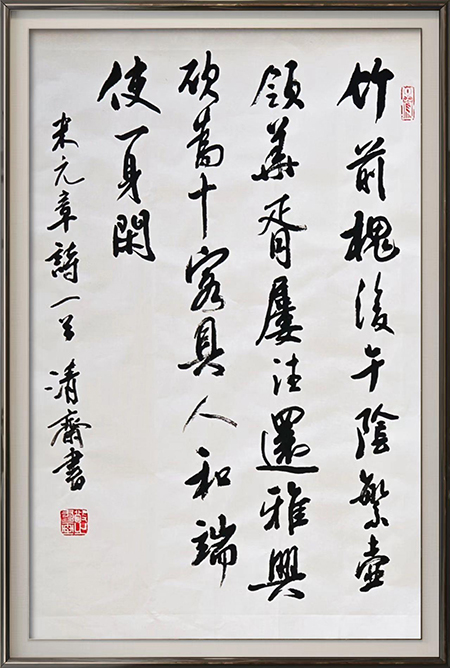 竹前槐後午陰繁壺
領華胥屢往還雅興
欲為十客具人和端
使一身閑
米元章詩一首 清齋書